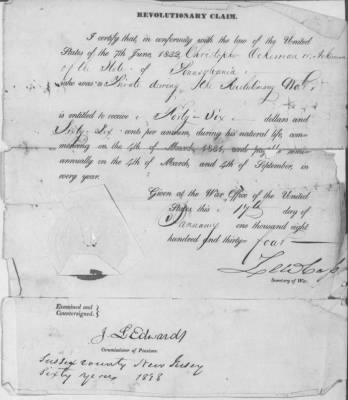 REVOLUTIONARY CLAIM.
I certify that, in conformity with the law of the United
States of the 7th June, 1832, Christopher Ackerman or Ackerson
of the State of Pennsylvania
who was a Private during the Revolutionary War
is entitled to receive Forty Six dollars and
Sixty Six cents per annum, during his natural life, com-
mencing on the 4th of March, 1831, and payable semi-
annually on the 4th of March, and 4th of September, in
every year.
Given at the War Office of the United
States, this 17th day of
January one thousand eight
hundred and thirty four
Lew Cass
Secretary of War.
Examined and
Countersigned.
J L Edwards
Commissioner of Pensions.
Sussex County New Jersey
Sixty years 1898